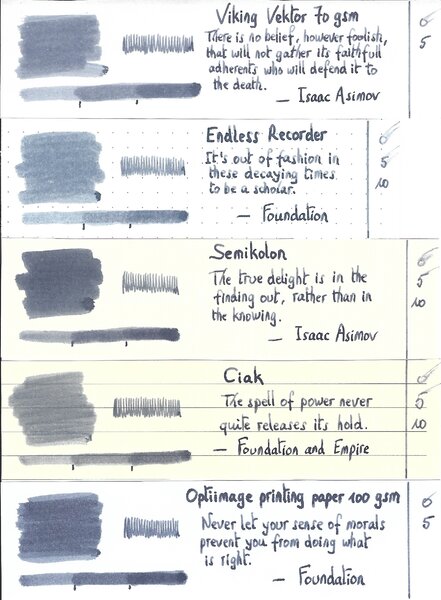 Viking Vektor 70 gsm
There is no belief, however foolish,
that will not gather its faithfull
adherents who will defend it to
the death.
— Isaac Asimov
0
5
Endless Recorder
It's out of fashion in
these decaying times
to be a scholar.
— Foundation
0
5
10
Semikolon
The true delight is in the
finding out, rather than in
the knowing.
— Isaac Asimov
0
5
10
Ciak
The spell of power never
quite releases its hold.
— Foundation and Empire
0
5
10
Optiimage printing paper 100 gsm
Never let your sense of morals
prevent you from doing what
is right.
— Foundation
0
5